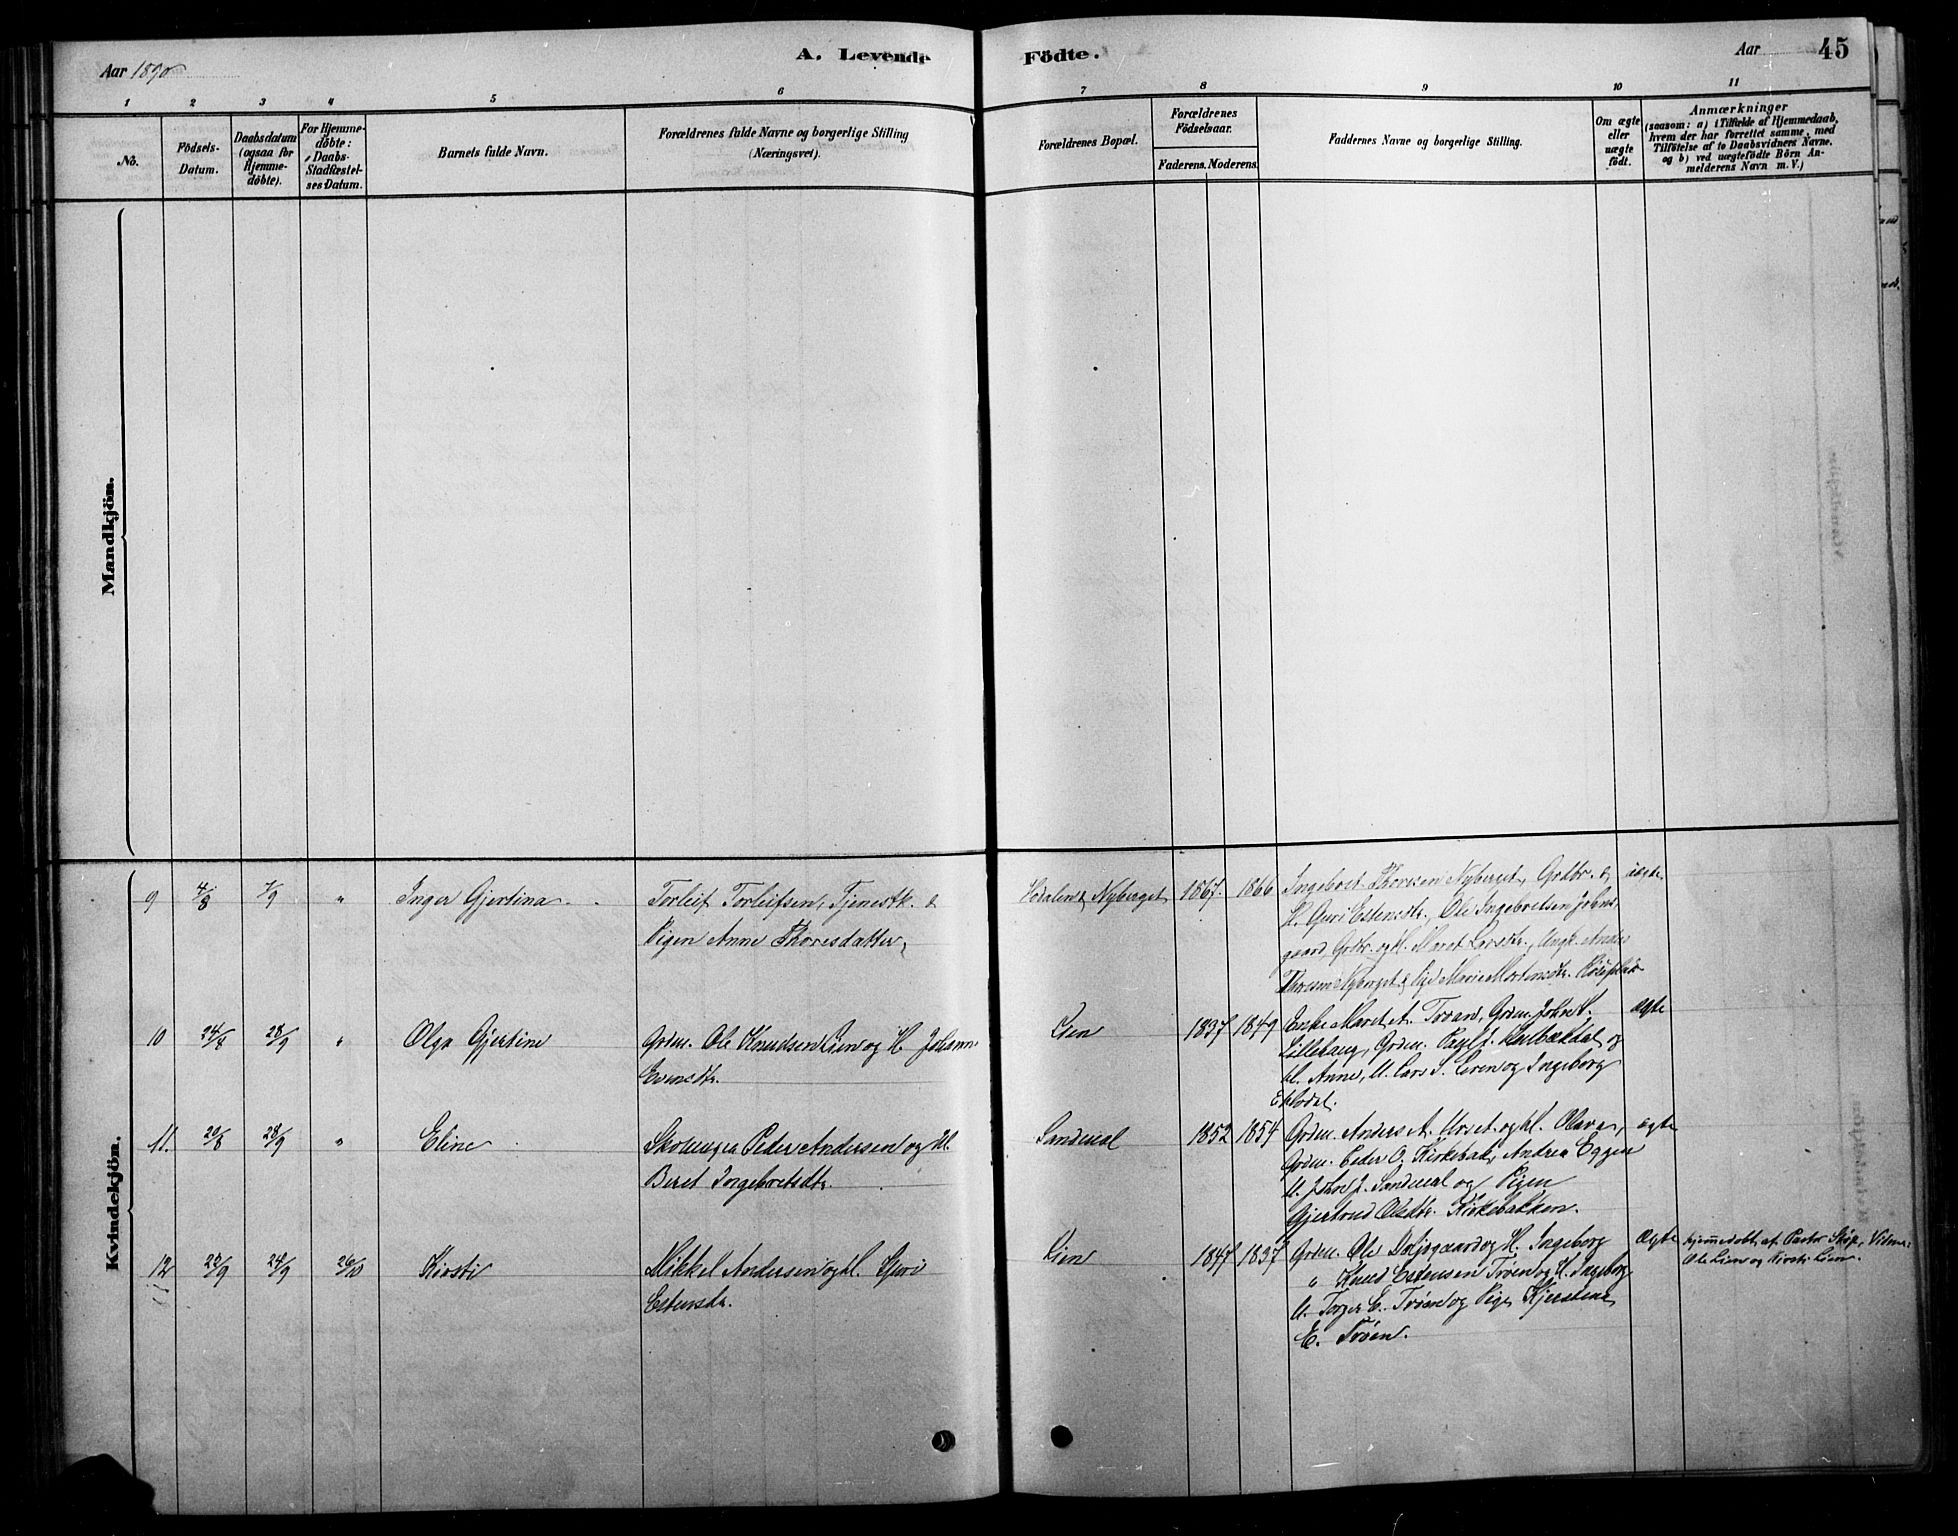 Aar 1890
A. Levende Födte.
Aar 45
1 2 3 4 5 6 7 8 9 10 11
No.
Födsels-Datum.
Daabsdatum (ogsaa for Hjemme-döbte).
For Hjemme-döbte: Daabs-Stadfæstel-ses Datum.
Barnets fulde Navn.
Forældrenes fulde Navne og borgerlige Stilling (Næringsvei).
Forældrenes Bopæl.
Forældrenes Födselsaar.
Faderens. Moderens.
Faddernes Navne og borgerlige Stilling.
Om ægte eller uægte födt.
Anmærkninger
(saasom: a) i Tilfælde af Hjemmedaab,
hvem der har forrettet samme, med
Tilföielse af to Daabsvidners Navne,
og b) ved uægtefödte Börn An-
melderens Navn m.V.)
Mandkjön.
Kvindekjön.
9 4/8 7/9 " Inger Gjertina
Torleif Torleifsen, Tjenestk. &
Pigen Anne Thoresdatter,
Hodalen & Nyberget 1867. 1866
Ingebret Thoresen Nyberget, Grdbr. &
H. Guri Estensdtr., Ole Ingebretsen Johns-
gaard, Grdbr. og H. Maret Larsdtr., Ungk. Anders
Thoresen Nyberget & Pige Marie Mortensdtr.
uægte
10 24/8 28/9 " Olga Gjertine
Grdm. Ole Knudsen Lien og H. Johanne
Evensdtr.
Lien 1837 1849
Enke Maret A. Troan, Grdm. John
Lillehaug, Grdm. Paul J. Hulbækdal og
H. Anne, U. Lars S. Lien og Ingeborg
ægte
11. 20/8 28/9 " Eline
Peder Andersen og H.
Beret Ingebretsdtr.
Sandmæl 1852 1854
Grdm. Anders A. Urset og H. Olava,
Grdm. Peder O. Kirkebak, Andrea Eggen
U. John J. Sandmæl og Pigen
Gjertrud Olsdtr. Kirkebakken.
ægte
12 20/9 24/9 26/10 Kirsti
Mikkel Andersen og H. Guri
Estensdtr.
Lien 1847 1837
Grdm. Ole og H. Ingeborg
" Knud Estensen Trøen og H. Ingeborg
U. Torger E. Trøen og Pige Kjerstine
E. Trøen.
Ægte
Hjemmedøbt af Pastor Vidner:
Ole Lien og Kirsti Lien.